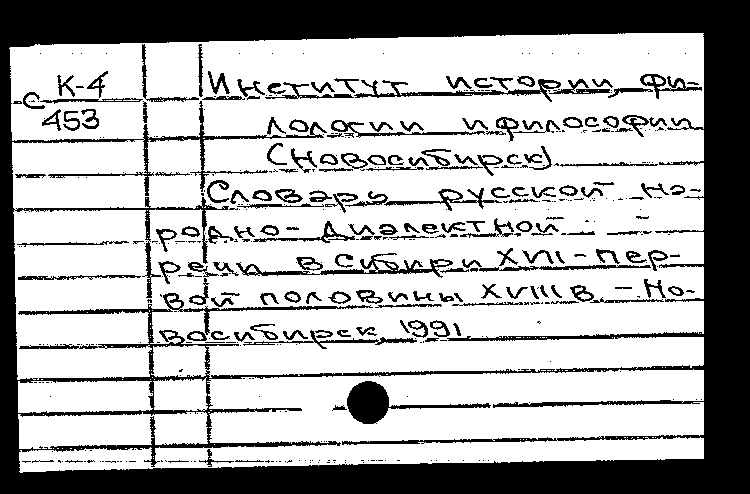 К-4
С 453
Институт истории, фи-
лологии и философии
(Новосибирск)
Словарь русской на-
родно-диалектной
речи в Сибири XVII - пер-
вой половины XVIII в. - Но-
восибирск, 1991.